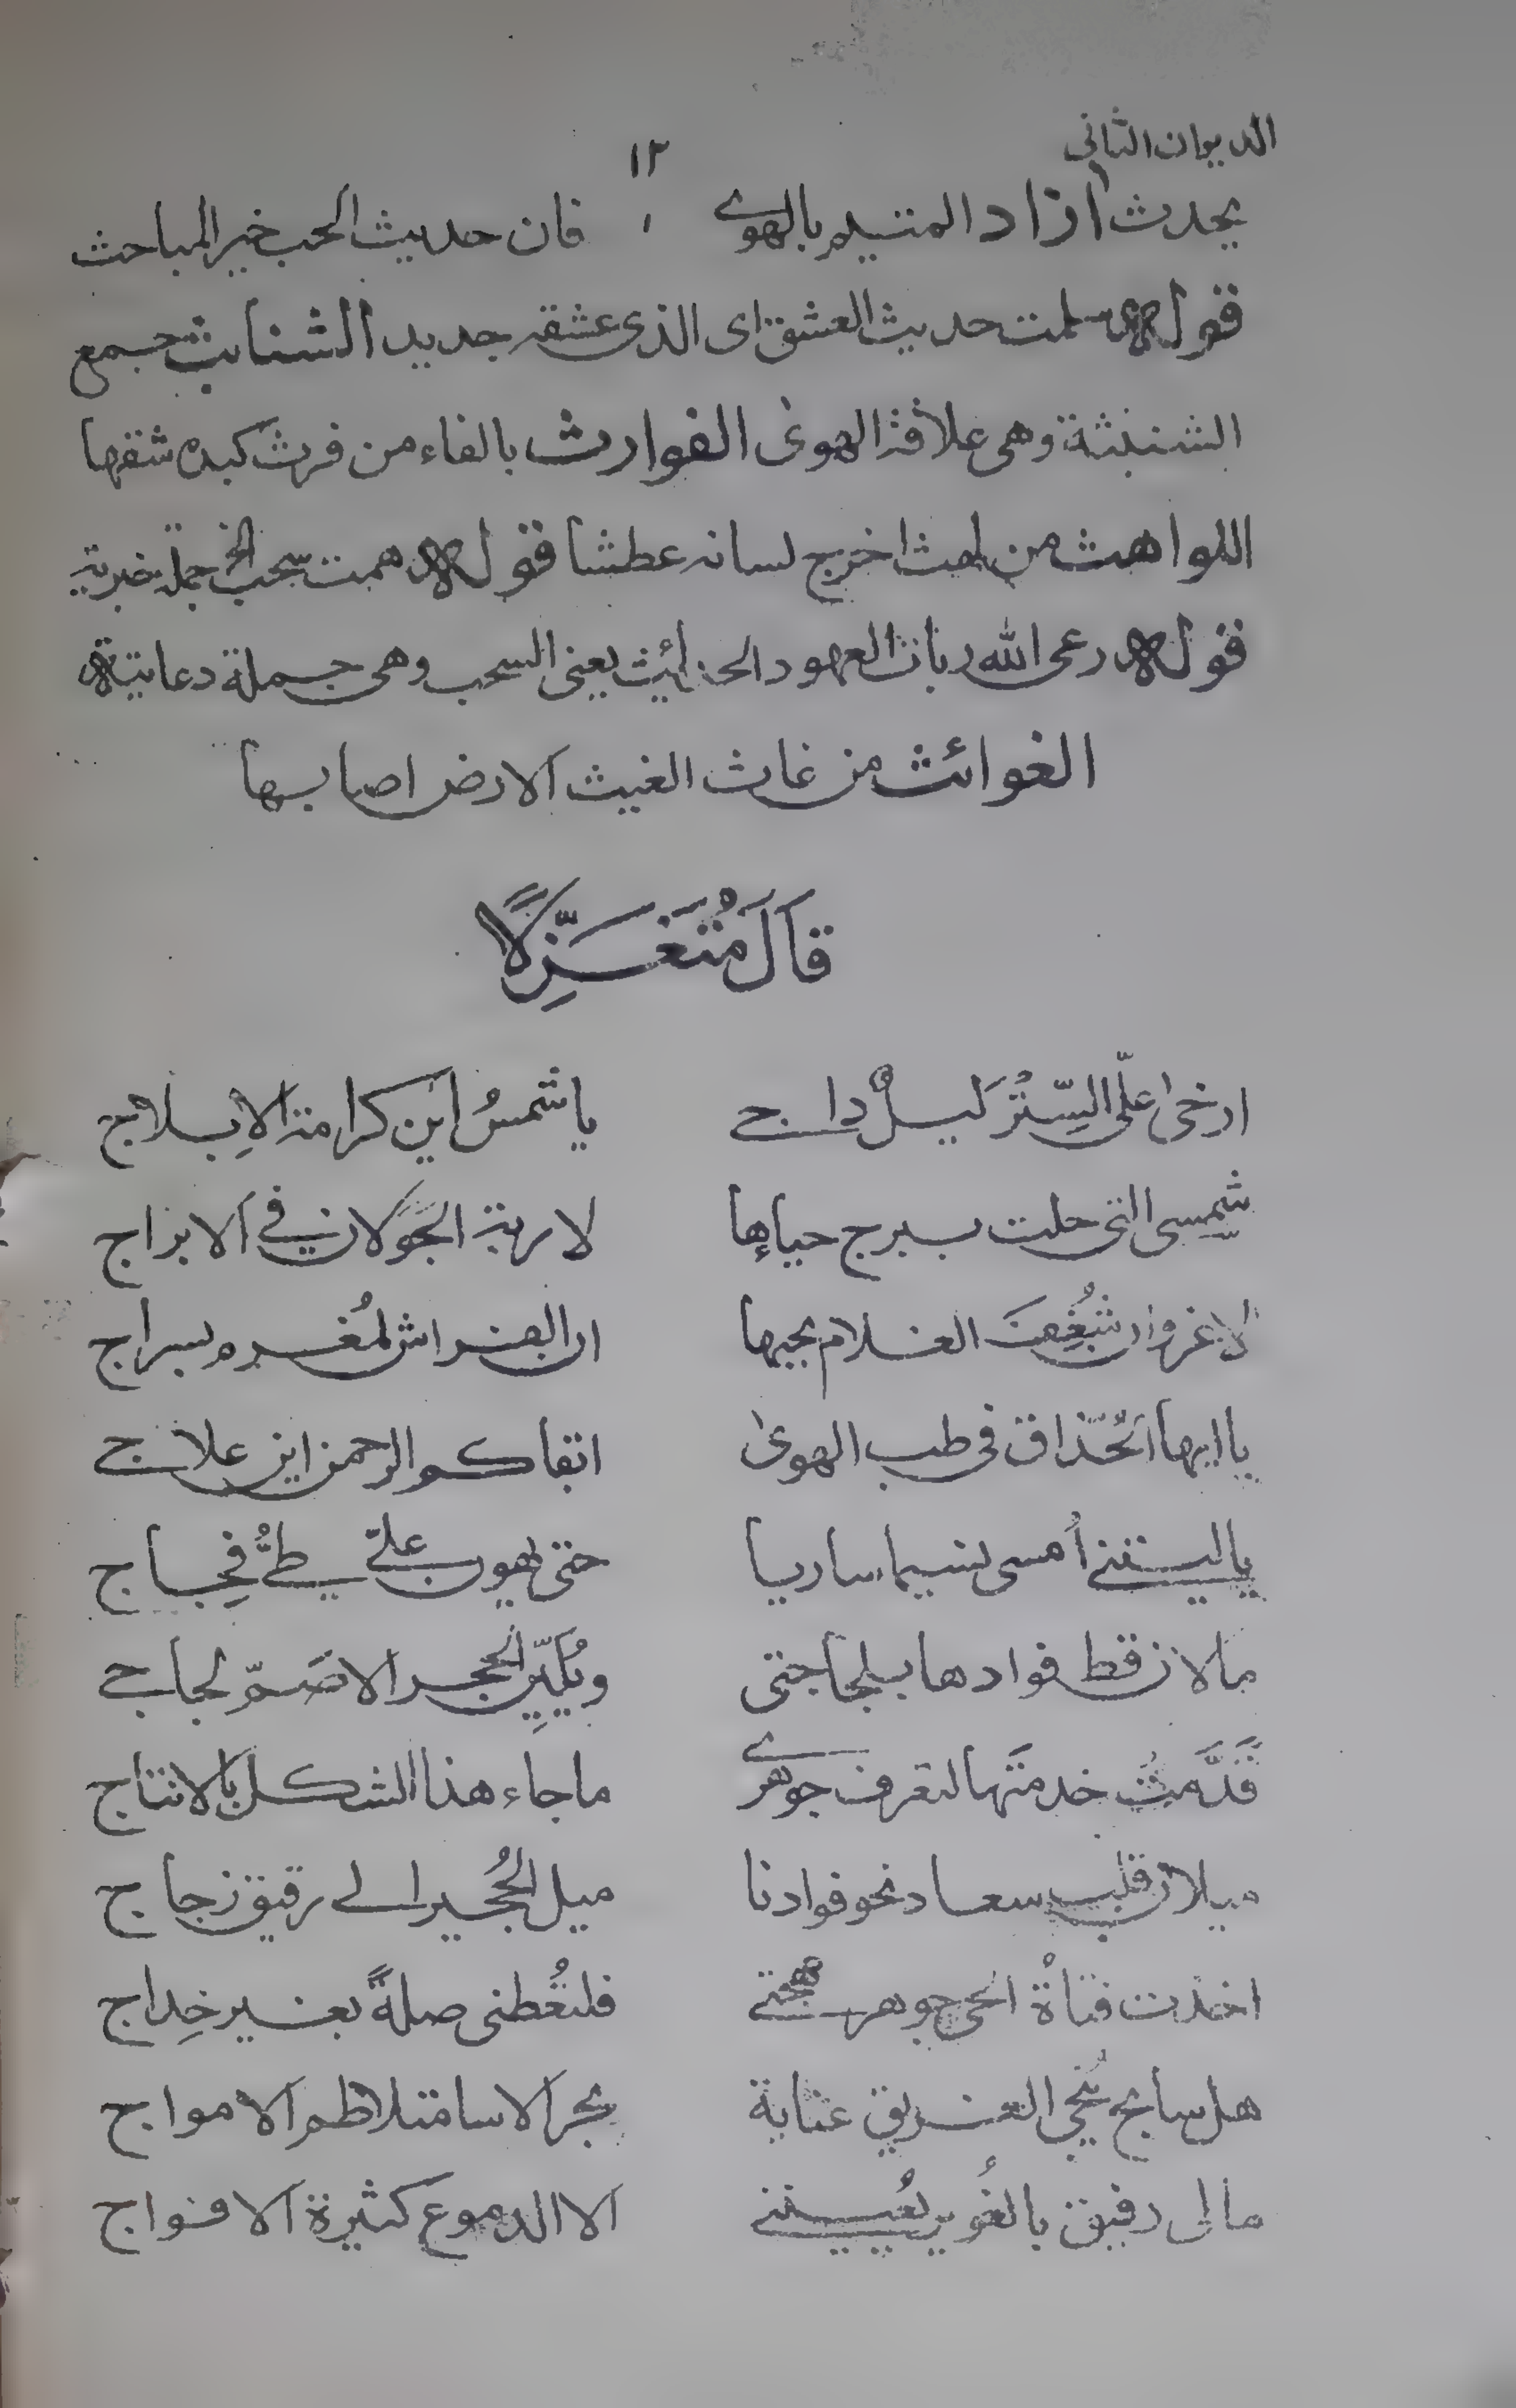 الديوان الثاني
١٢
يحدث آزاد المتيم بالهوى فان حديث الحب خير المباحث
قوله سلمت حديث العشق اى الذى عشقه جديد الشنابث جمع
الشنبثة وهى علاقة الهوى الفوارث بالفاء من فرث كبده شقها
اللواهث من لهث اخرج لسانه عطشا قوله همت سحب الخ جملة خبرية
قوله رعى الله ربات العهود الحدائث يعنى السحب وهى جملة دعائية
الغوائث من غاث الغيث الارض اصابها
قَالَ مُتَغَزِّلًا
ارخى علَى السِّتْرَ ليلٌ داج ياشمسُ اين كرامة الاِبلاج
شمسى التى حلت ببرج حياءها لا ربة الجوّ لان فى الابراج
لا غروان شُغِفَ الغلام بحبها ان الفراش لمُغرم بسراج
ياايها الحُذّاق فى طب الهوى ابقاكم الرحمن اين علاج
ياليتنى اُمسى نسيما ساريا حتى يهون علىّ طىُّ فِجاج
مالان قط فوادها بلجاجتى ويُليِّن الحجر الاصَمّ لجاجى
قَدَّمتُ خدمتَها لتعرف جوهرى ماجاء هذا الشكل بالانتاج
ميلان قلب سعاد نحو فوادنا ميل الحُجير الى رقيق زجاج
اخذت فتاةُ الحى جوهر مهجتى فلتُعْطنى صلةً بغير خِداج
هل سابح يُنجى الغريق عناية بحر الاسا متلاطم الامواج
مالى رفيق بالغُوير يُعيننى الا الدموع كثيرة الافواج